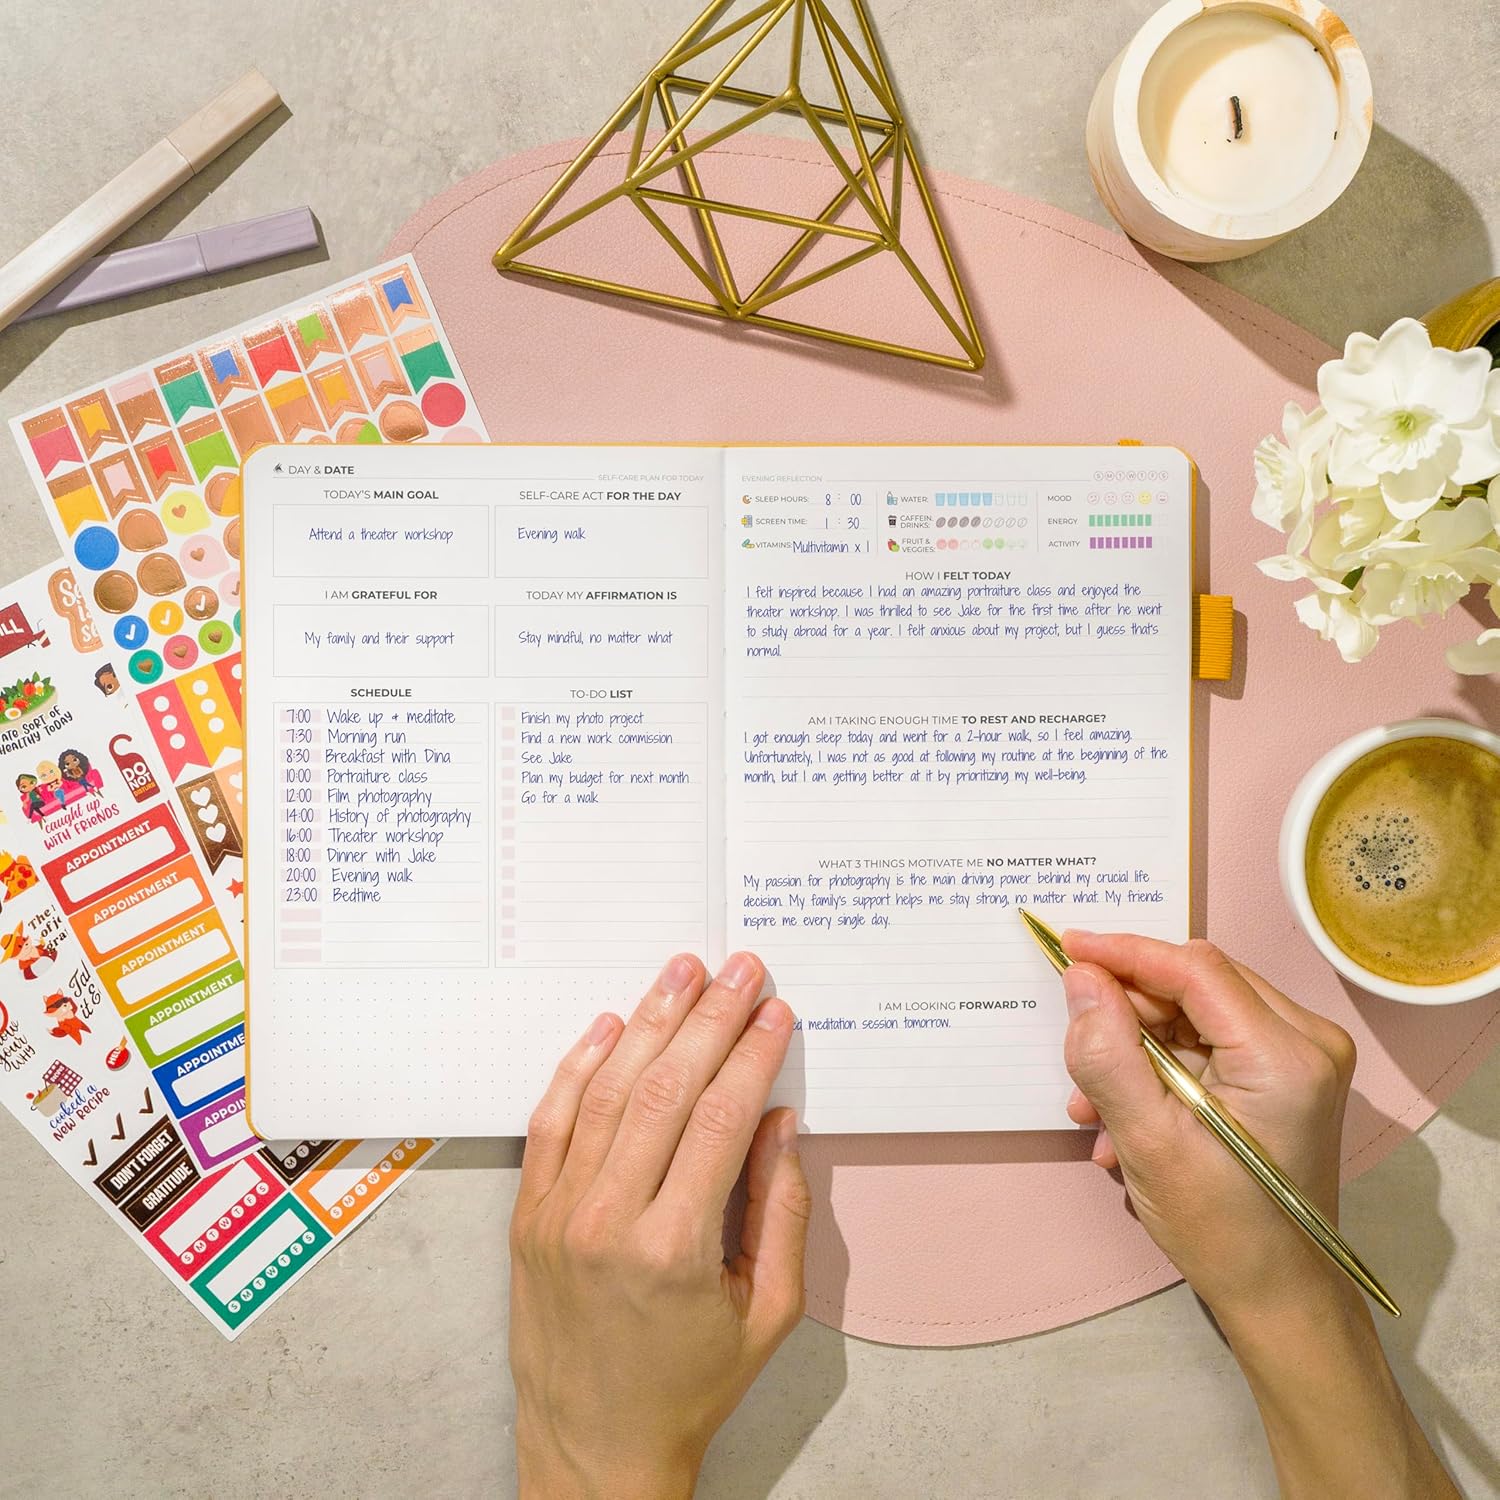 DAY & DATE
SELF-CARE PLAN FOR TODAY
TODAY'S MAIN GOAL
Attend a theater workshop
SELF-CARE ACT FOR THE DAY
Evening walk
I AM GRATEFUL FOR
My family and their support
TODAY MY AFFIRMATION IS
Stay mindful, no matter what
SCHEDULE
7:00 Wake up + meditate
7:30 Morning run
8:30 Breakfast with Dina
10:00 Portraiture class
12:00 Film photography
14:00 History of photography
16:00 Theater workshop
18:00 Dinner with Jake
20:00 Evening walk
23:00 Bedtime
TO-DO LIST
Finish my photo project
Find a new work commission
See Jake
Plan my budget for next month
Go for a walk
EVENING REFLECTION
S M T W T F S
SLEEP HOURS: 8 : 00
SCREEN TIME: 1 : 30
VITAMINS: Multivitamin x 1
WATER:
CAFFEIN.
DRINKS:
FRUIT &
VEGGIES:
MOOD
ENERGY
ACTIVITY
HOW I FELT TODAY
I felt inspired because I had an amazing portraiture class and enjoyed the
theater workshop. I was thrilled to see Jake for the first time after he went
to study abroad for a year. I felt anxious about my project, but I guess that's
normal.
AM I TAKING ENOUGH TIME TO REST AND RECHARGE?
I got enough sleep today and went for a 2-hour walk, so I feel amazing.
Unfortunately, I was not as good at following my routine at the beginning of the
month, but I am getting better at it by prioritizing my well-being.
WHAT 3 THINGS MOTIVATE ME NO MATTER WHAT?
My passion for photography is the main driving power behind my crucial life
decision. My family's support helps me stay strong, no matter what. My friends
inspire me every single day.
I AM LOOKING FORWARD TO
meditation session tomorrow.
ATE SORT OF
HEALTHY TODAY
DO
NOT
DISTURB
caught up
WITH FRIENDS
APPOINTMENT
APPOINTMENT
APPOINTMENT
APPOINTMENT
APPOINTME
APPOIN
The
of
cooked a
NEW RECIPE
DON'T FORGET
GRATITUDE
S M T W T F S
S M T W T F S
S M T W T F S